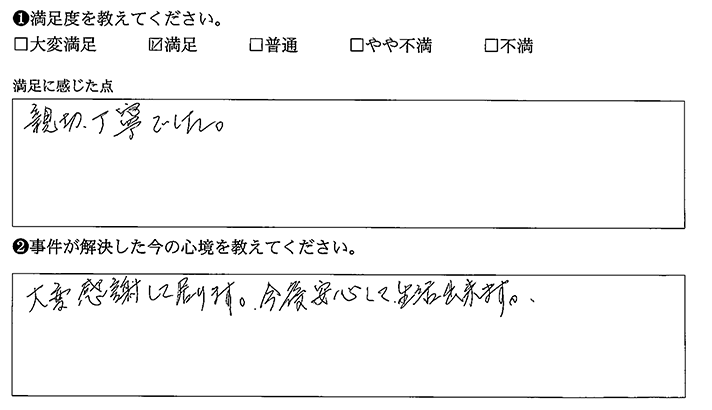 ❶満足度を教えてください。
□大変満足 ☑満足 □普通 □やや不満 □不満
満足に感じた点
親切、丁寧でした。
❷事件が解決した今の心境を教えてください。
大変感謝して居ります。今後安心して生活出来ます。